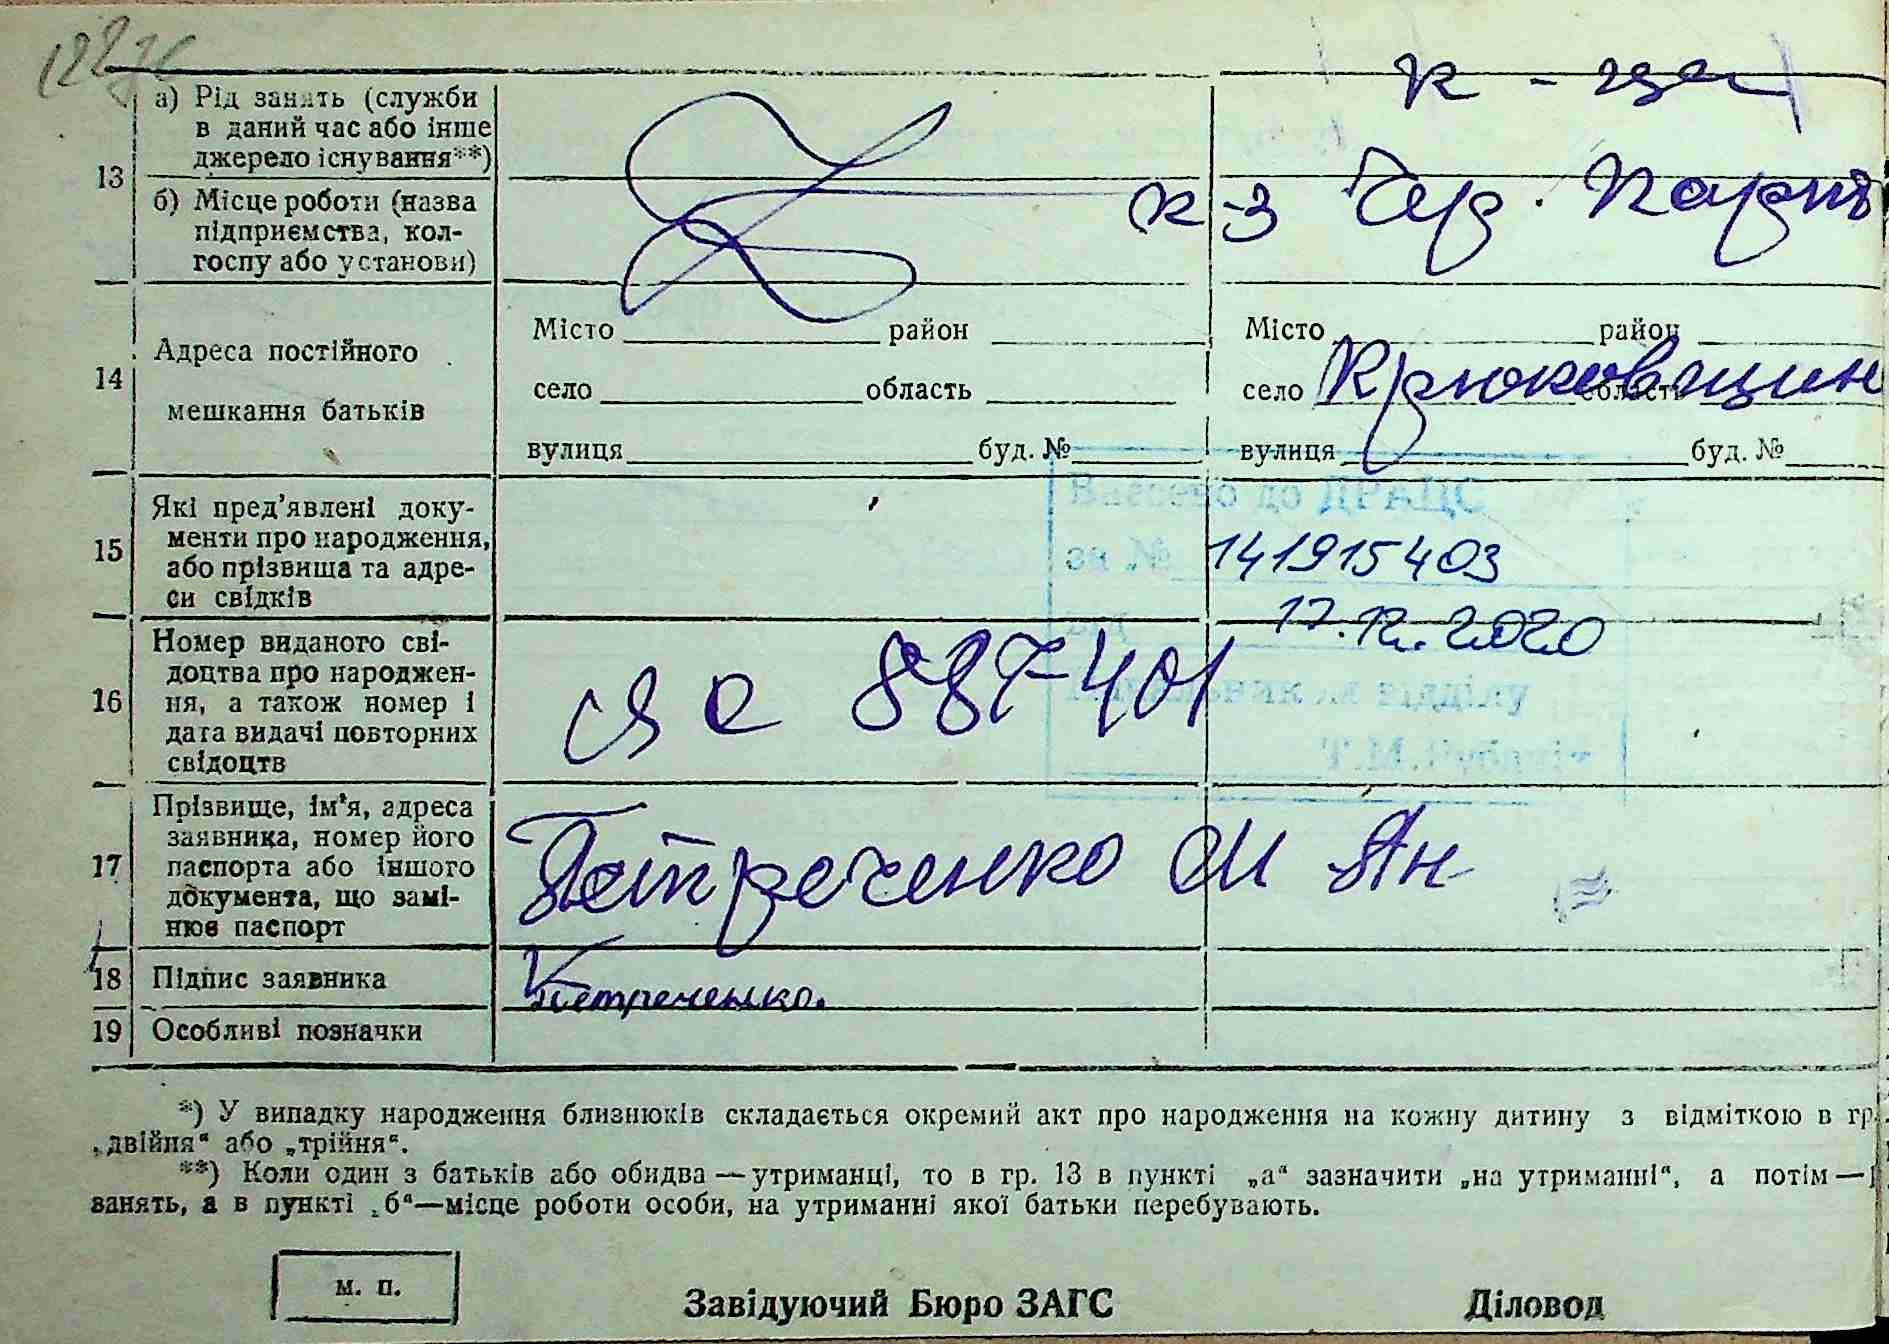 а) Рід занять (служби
в даний час або інше
джерело існування**)
к-ца
13
б) Місце роботи (назва
підприємства, кол-
госпу або установи)
к-з Чер.
14
Адреса постійного
мешкання батьків
Місто район
село область
вулиця буд. №
Місто район
село Крюковщин область
вулиця буд. №
15
Які пред'явлені доку-
менти про народження,
або прізвища та адре-
си свідків
Внесено до ДРАЦС
за № 141915403
від 17.12.2020
відділу
Т.М.
16
Номер виданого сві-
доцтва про народжен-
ня, а також номер і
дата видачі повторних
свідоцтв
887401
17
Прізвище, ім'я, адреса
заявника, номер його
паспорта або іншого
документа, що замі-
нює паспорт
Петреченко М Ян
18
Підпис заявника
Петреченко.
19
Особливі позначки
*) У випадку народження близнюків складається окремий акт про народження на кожну дитину з відміткою в гр.
„двійня“ або „трійня“.
**) Коли один з батьків або обидва — утриманці, то в гр. 13 в пункті „а“ зазначити „на утриманні“, а потім —
занять, а в пункті „б“—місце роботи особи, на утриманні якої батьки перебувають.
м. п.
Завідуючий Бюро ЗАГС
Діловод